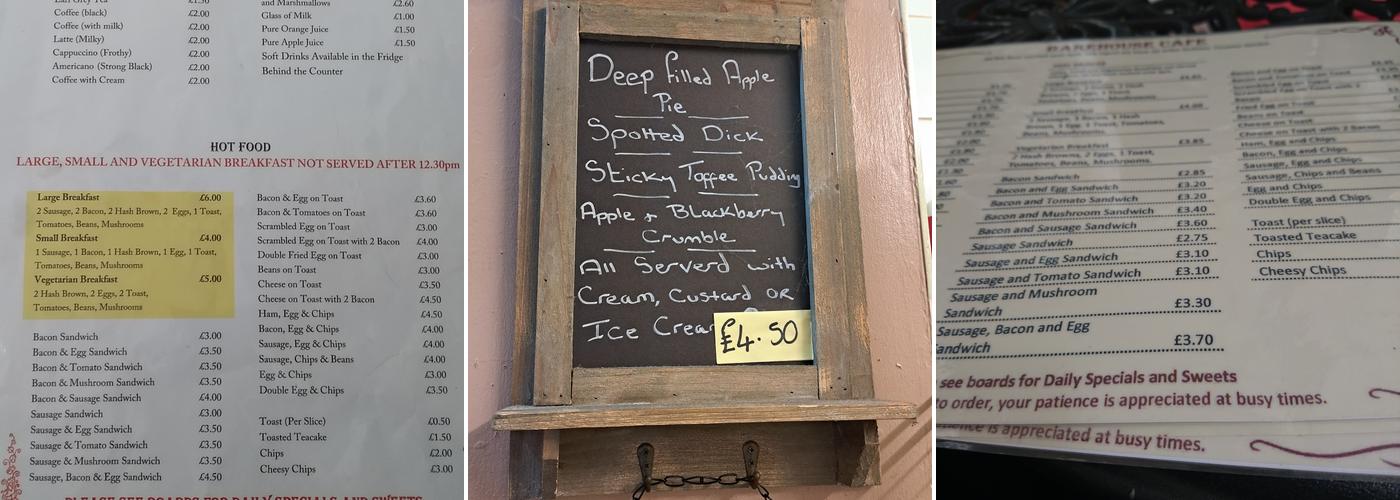 Coffee (black) £2.00
Coffee (with milk) £2.00
Latte (Milky) £2.00
Cappuccino (Frothy) £2.00
Americano (Strong Black) £2.00
Coffee with Cream £2.00
and Marshmallows £2.60
Glass of Milk £1.00
Pure Orange Juice £1.50
Pure Apple Juice £1.50
Soft Drinks Available in the Fridge
Behind the Counter
HOT FOOD
LARGE, SMALL AND VEGETARIAN BREAKFAST NOT SERVED AFTER 12.30pm
Large Breakfast £6.00
2 Sausage, 2 Bacon, 2 Hash Brown, 2 Eggs, 1 Toast,
Tomatoes, Beans, Mushrooms
Small Breakfast £4.00
1 Sausage, 1 Bacon, 1 Hash Brown, 1 Egg, 1 Toast,
Tomatoes, Beans, Mushrooms
Vegetarian Breakfast £5.00
2 Hash Brown, 2 Eggs, 2 Toast,
Tomatoes, Beans, Mushrooms
Bacon Sandwich £3.00
Bacon & Egg Sandwich £3.50
Bacon & Tomato Sandwich £3.50
Bacon & Mushroom Sandwich £3.50
Bacon & Sausage Sandwich £4.00
Sausage Sandwich £3.00
Sausage & Egg Sandwich £3.50
Sausage & Tomato Sandwich £3.50
Sausage & Mushroom Sandwich £3.50
Sausage, Bacon & Egg Sandwich £4.50
Bacon & Egg on Toast £3.60
Bacon & Tomatoes on Toast £3.60
Scrambled Egg on Toast £3.00
Scrambled Egg on Toast with 2 Bacon £4.00
Double Fried Egg on Toast £3.00
Beans on Toast £3.00
Cheese on Toast £3.50
Cheese on Toast with 2 Bacon £4.50
Ham, Egg & Chips £4.50
Bacon, Egg & Chips £4.00
Sausage, Egg & Chips £4.00
Sausage, Chips & Beans £4.00
Egg & Chips £3.00
Double Egg & Chips £3.50
Toast (Per Slice) £0.50
Toasted Teacake £1.50
Chips £2.00
Cheesy Chips £3.00
PLEASE SEE BOARDS FOR DAILY SPECIALS AND SWEETS
Deep filled Apple
Pie
Spotted Dick
Sticky Toffee Pudding
Apple + Blackberry
Crumble
All Serverd with
Cream, Custard OR
Ice Crea
£4.50
BAKEHOUSE CAFE
£4.00
Vegetarian Breakfast £3.85
2 Hash Browns, 2 Eggs, 1 Toast,
Tomatoes, Beans, Mushrooms.
Bacon Sandwich £2.85
Bacon and Egg Sandwich £3.20
Bacon and Tomato Sandwich £3.20
Bacon and Mushroom Sandwich £3.40
Bacon and Sausage Sandwich £3.60
Sausage Sandwich £2.75
Sausage and Egg Sandwich £3.10
Sausage and Tomato Sandwich £3.10
Sausage and Mushroom
Sandwich £3.30
Sausage, Bacon and Egg
andwich £3.70
Bacon and Egg on Toast
Fried Egg on Toast
Beans on Toast
Cheese on Toast
Cheese on Toast with 2 Bacon
Ham, Egg and Chips
Bacon, Egg and Chips
Sausage, Egg and Chips
Sausage, Chips and Beans
Egg and Chips
Double Egg and Chips
Toast (per slice)
Toasted Teacake
Chips
Cheesy Chips
see boards for Daily Specials and Sweets
to order, your patience is appreciated at busy times.
is appreciated at busy times.